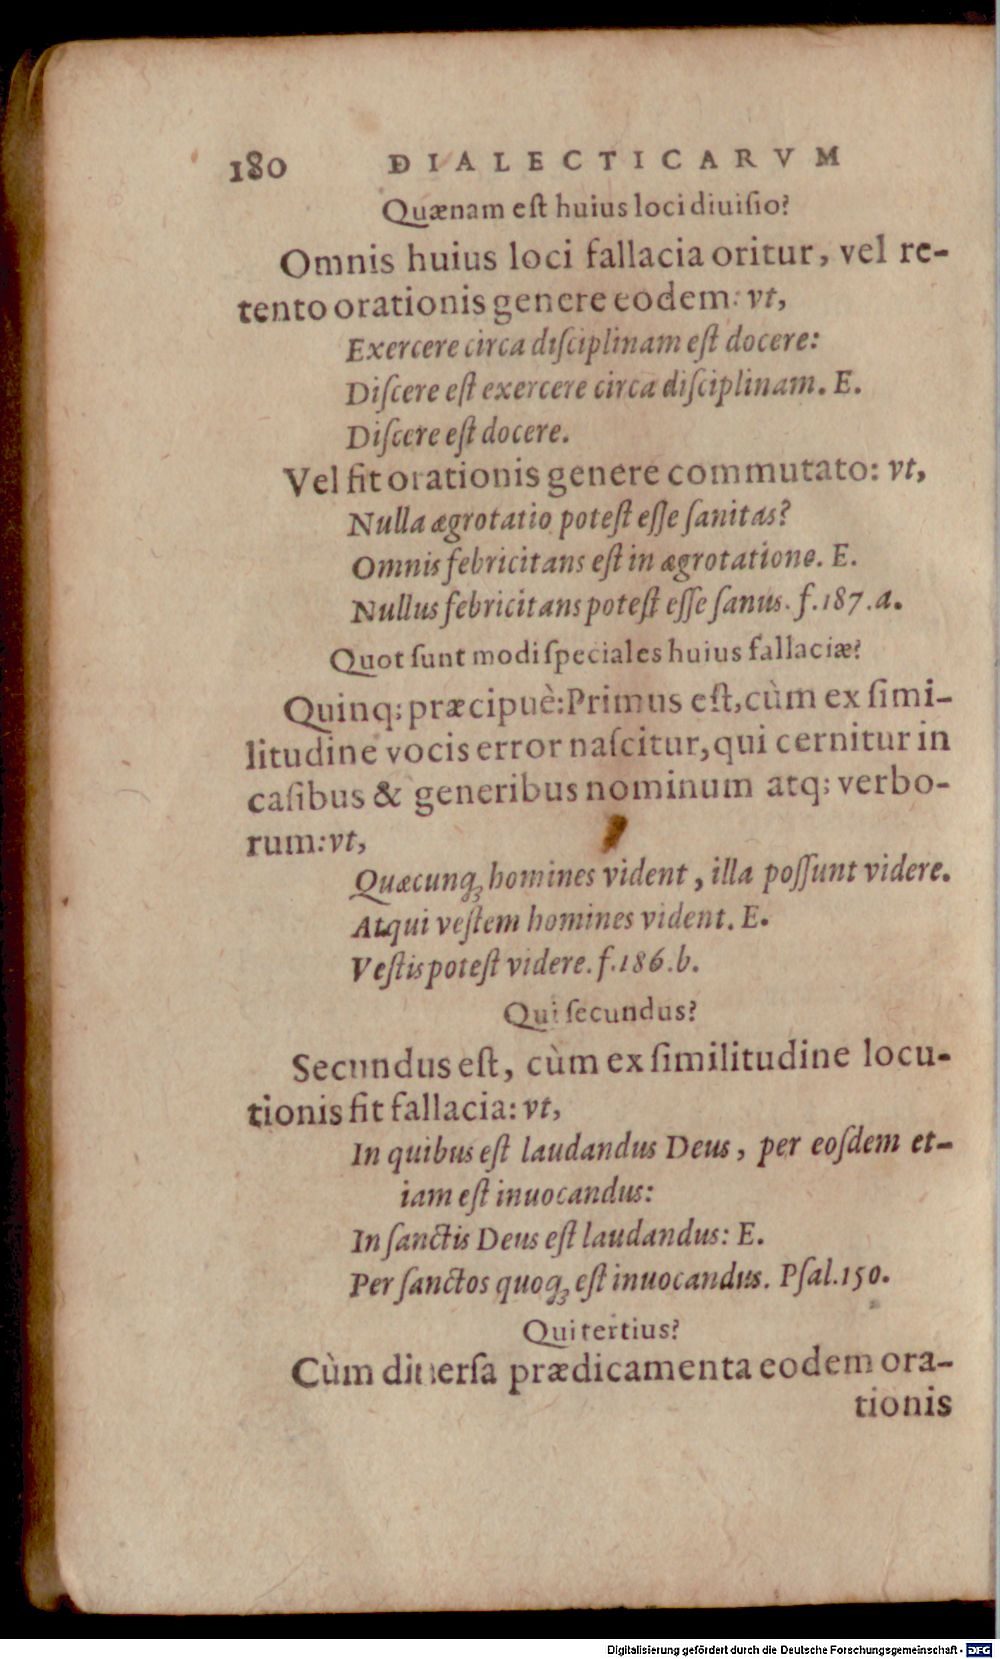 180 DIALECTICARVM
Quænam eſt huius loci diuiſio?
Omnis huius loci fallacia oritur, vel re-
tento orationis genere eodem: vt,
Exercere circa diſciplinam eſt docere:
Diſcere eſt exercere circa diſciplinam. E.
Diſcere eſt docere.
Vel fit orationis genere commutato: vt,
Nulla ægrotatio poteſt eſſe ſanitas?
Omnis febricitans eſt in ægrotatione. E.
Nullus febricitans poteſt eſſe ſanus. f.187.a.
Quot ſunt modi ſpeciales huius fallaciæ?
Quinq; præcipuè: Primus eſt, cùm ex ſimi-
litudine vocis error naſcitur, qui cernitur in
caſibus & generibus nominum atq; verbo-
rum: vt,
Quæcunq; homines vident, illa poſſunt videre.
Atqui veſtem homines vident. E.
Veſtis poteſt videre. f.186.b.
Qui ſecundus?
Secundus eſt, cùm ex ſimilitudine locu-
tionis fit fallacia: vt,
In quibus eſt laudandus Deus, per eoſdem et-
iam eſt inuocandus:
In ſanctis Deus eſt laudandus: E.
Per ſanctos quoq; eſt inuocandus. Pſal.150.
Qui tertius?
Cùm diuerſa prædicamenta eodem ora-
tionis
Digitalisierung gefördert durch die Deutsche Forschungsgemeinschaft - DFG